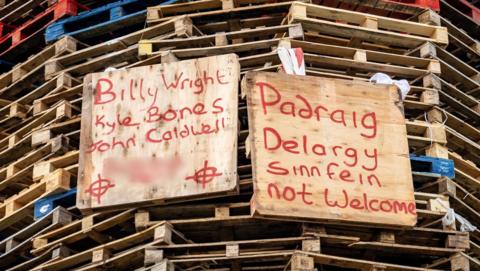 Billy Wright
Kyle Bones
John Caldwell
Padraig
Delargy
Sinn fein
not Welcome